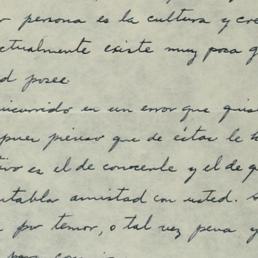 persona es la cultura y cre
ctualmente existe muy poca g
d posee
incurrido en un error que quis
pues pienso que de éstar le h
tivo es el de conocerle y el de q
ntabla amistad con usted. S
por temor, o tal vez pena y